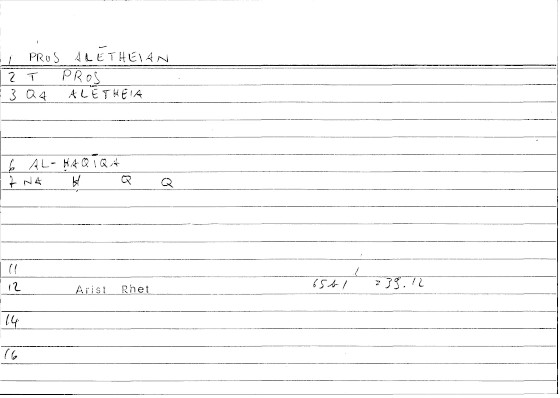 1 PROS ALĒTHEIAN
2 T PROS
3 Q4 ALĒTHEIA
6 AL-ḤAQĪQA
7 NA Ḥ Q Q
11
12 Arist Rhet 65a1 =39.12
14
16